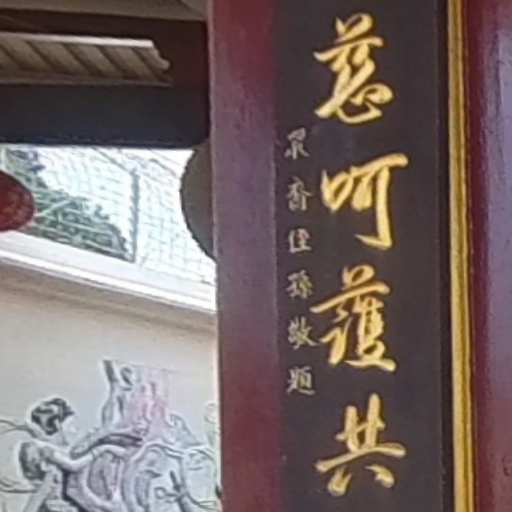 慈呵護共
眾裔侄孫敬題